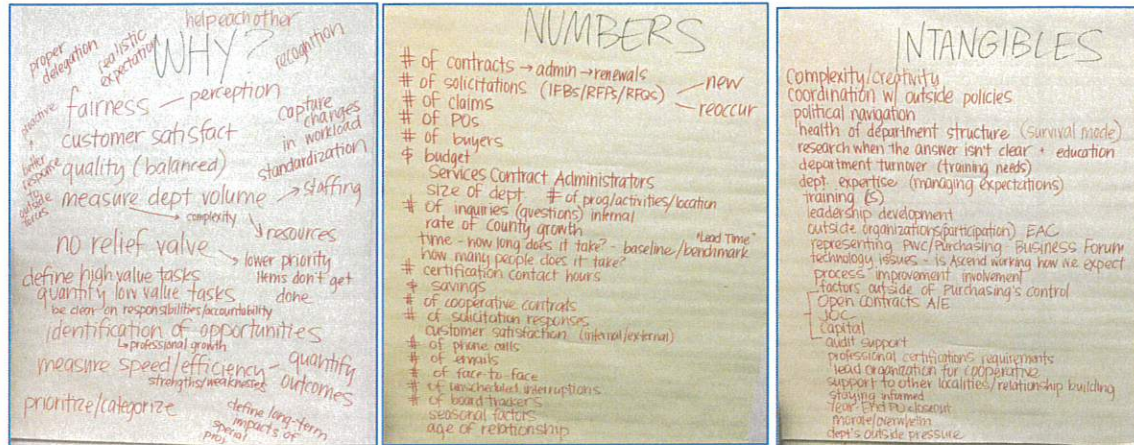 help each other
proper
delegation
realistic
expectation
WHY?
recognition
fairness — perception
proactive
capture
changes
in workload
customer satisfact
standardization
better
response
to
outside
forces
quality (balanced)
measure dept volume → staffing
complexity
resources
no relief valve → lower priority
items don't get
done
define high value tasks
quantify low value tasks
be clear on responsibilities/accountability
identification of opportunities
professional growth
measure speed/efficiency - quantify
outcomes
strengths/weaknesses
prioritize/categorize
define long-term
impacts of
special
proj
NUMBERS
# of contracts → admin → renewals
# of solicitations (IFBs/RFPs/RFQs) — new
— reoccur
# of claims
# of POs
# of buyers
$ budget
Services Contract Administrators
size of dept. # of prog/activities/location
# of inquiries (questions) internal
rate of County growth
"Lead Time"
time - how long does it take? - baseline/benchmark
how many people does it take?
# certification contact hours
$ savings
# of cooperative contracts
# of solicitation responses
customer satisfaction (internal/external)
# of phone calls
# of emails
# of face-to face
# of unscheduled interruptions
# of board trackers
seasonal factors
age of relationship
INTANGIBLES
complexity/creativity
coordination w/ outside policies
political navigation
health of department structure (survival mode)
research when the answer isn't clear + education
department turnover (training needs)
dept. expertise (managing expectations)
training (S)
leadership development
outside organizations(participation) EAC
representing PWC/Purchasing - Business Forum
technology issues - is Ascend working how we expect
process improvement involvement
factors outside of Purchasing's control
open contracts A/E
JOC
Capital
audit support
professional certifications requirements
lead organization for cooperative
support to other localities/relationship building
staying informed
Year-End PO closeout
morale/overwhelm
dept's outside pressure